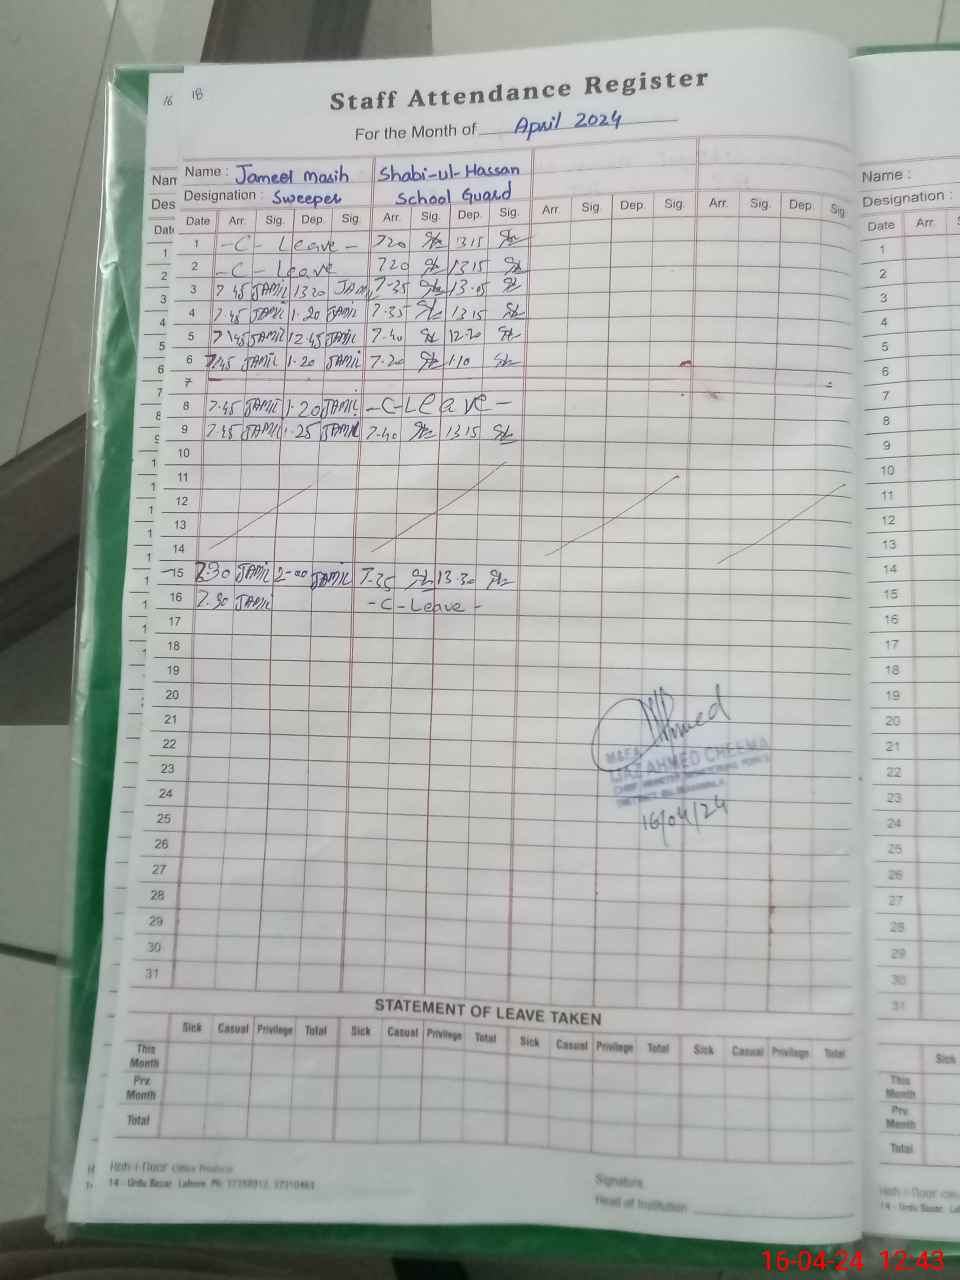 16 18
Staff Attendance Register
For the Month of April 2024
Name : Jameel masih Shabi-ul-Hassan
Designation : Sweeper School Guard
Date Arr. Sig. Dep. Sig. Arr. Sig. Dep. Sig. Arr. Sig. Dep. Sig. Arr. Sig. Dep. Sig.
1 -C- Leave - 720 1315
2 -C- Leave 720 1315
3 7 45 JAMIL 1320 JAM 7-35 13.05
4 7.45 JAMIL 1.20 JAMIL 7.35 1315
5 7.45 JAMIL 12.45 JAMIL 7.40 12.20
6 7.45 JAMIL 1.20 JAMIL 7.20 1.10
7
8 7.45 JAMIL 1.20 JAMIL -C-Leave-
9 7.45 JAMIL 1.25 JAMIL 7.40 1315
10
11
12
13
14
15 JAMIL 2-00 JAMIL 7.25 13.30
16 7.30 JAMIL -C-Leave-
17
18
19
20
21
22
23
24
25
26
27
28
29
30
31
Ahmed
M&EA
IJAZ AHMED CHEEMA
16/04/24
STATEMENT OF LEAVE TAKEN
Sick Casual Privilege Total Sick Casual Privilege Total Sick Casual Privilege Total Sick Casual Privilege Total
This Month
Prv. Month
Total
14 - Urdu Bazar Lahore Ph:
Signature
Head of Institution
Nam
Des
Date
1
2
3
4
5
6
7
8
Name :
Designation :
Date Arr.
1
2
3
4
5
6
7
8
9
10
11
12
13
14
15
16
17
18
19
20
21
22
23
24
25
26
27
28
29
30
31
Sick
This Month
Prv. Month
Total
14 - Urdu Bazar
16-04-24 12:43